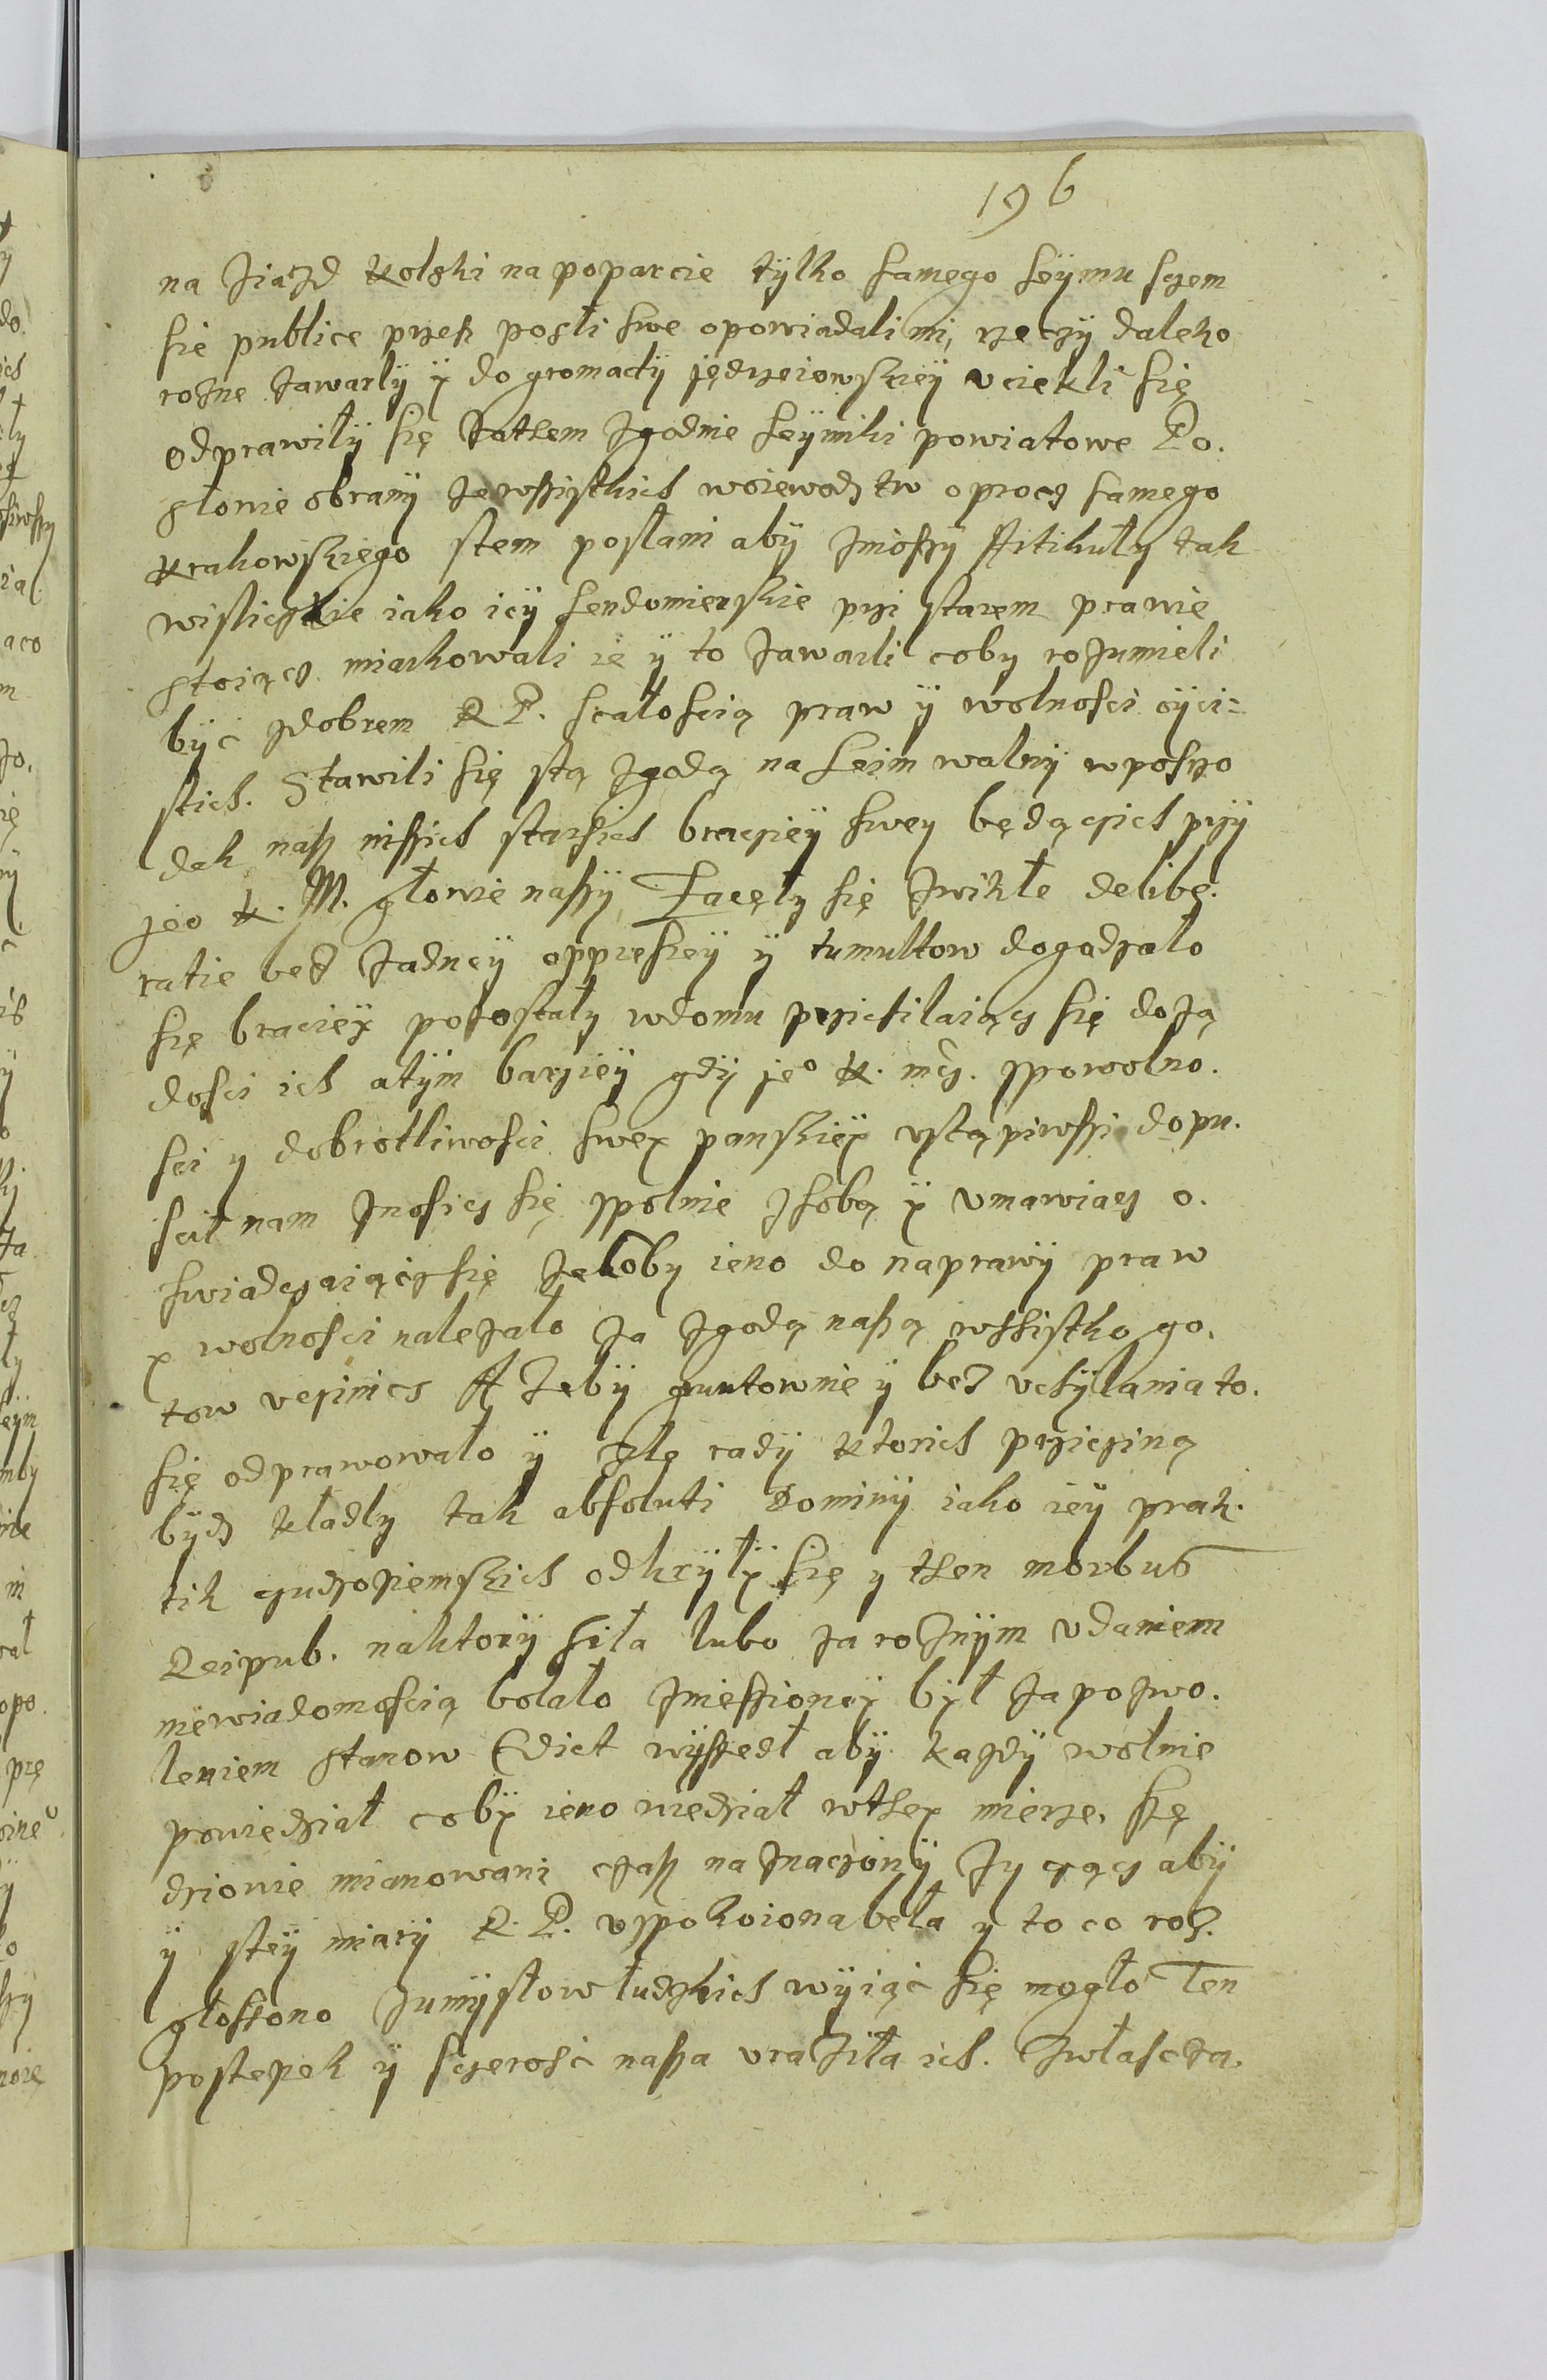 196
na ziazd kolski na poparcie tylko samego seymu sczem
sie publice przesz posły swe opowiadali ini, rzeczy daleko
rozne zawarly y do gromady jędrzeiowskiey vciekli się
odprawiły się zathem zgodnie seymiki powiatowe Po.
słowie obrany ze wssistkich woiewodztw oprocz samego
krakowskiego stem posłani aby znioszy Artikuły tak
wislickie iako iey sendomierskie przi starem prawie
stoiącz miarkowali ie y to zawarli coby rozumieli
być zdobrem R P. scałoscią praw y wolnosci oyci=
stich. Stawili się stą zgodą na seim walny wposrzo
dek nasz inszich starsich bracziey swey będączich przy
jeo K. M. głowie naszy, Zacęły się zwikłe delibe.
ratie bez zadney oppressiey y tumultow dogadzało
się braciey pozostały wdomu przichilaiącz się do zą
dosci ich a tym barziey gdy jeo K. mcz. zpowolno.
sci y dobrotliwosci swey panskiey vstąpiwszi dopu.
scił nam znosicz się zpolnie zsobą y vmawiacz o.
swiadczaiącz się zekoby ieno do naprawy praw
y wolnosci nalezało za zgodą naszą wssistko go.
tow vezinicz A zeby gruntownie y bez vchylania to.
się odprawowało y złe rady ktorich prziczyną
bydz kładly tak absoluti Dominy iako iey prak.
tik cudzoziemskich odkryły się y then morbus
Reipub. naktory siła lubo za roznym vdaniem
niewiadomoscią bolało zniessioney był za pozwo.
leniem stanow Edict wyszedł aby kazdy wolnie
powiedział coby ieno wiedział wthey mierze. Sę
dziowie mianowani czasz naznaczony zyczącz aby
y stey miary R. P. vspokoiona beła y to co roz.
głoszono zumysłow ludzkich wyiąć się mogło Ten
postepek y sczerosc nasza vraziła ich. Zwłascza.